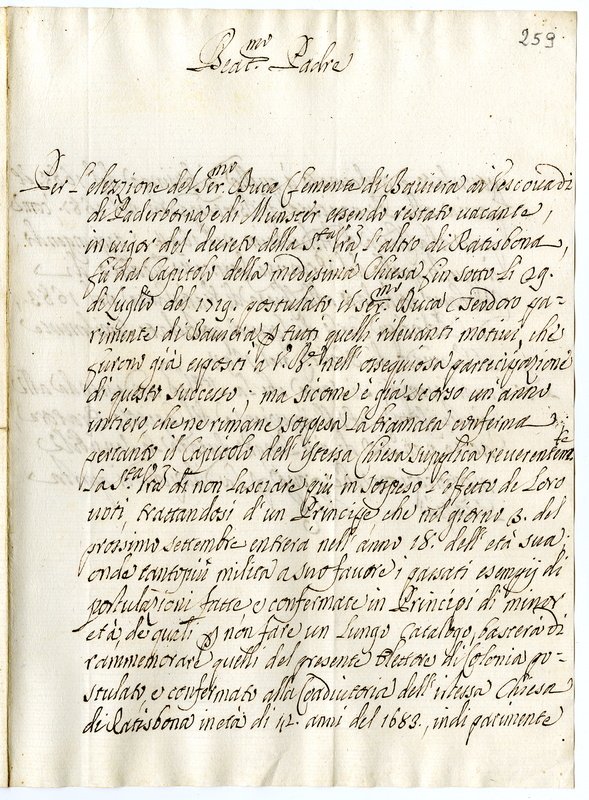 259
Beat.mo Padre
Per l'elezzione del Ser.mo Duca Clemente di Baviera ai Vescovadi
di Paderborna e di Munster essendo restato vacante,
in vigor del decreto della S.tà V.ra l'altro di Ratisbona,
fù dal Capitolo della medesima Chiesa fin sotto li 29.
di luglio del 1719. postulato il Ser.mo Duca Teodoro pa-
rimente di Baviera p tutti quelli rilevanti motivi, che
furono già esposti a V. B.ne nell'ossequiosa participazione
di questo successo; ma sicome è già scorso un anno
intiero che ne rimane sospesa la bramata conferma
pertanto il Capitolo dell'istessa Chiesa supplica reverentem.te
la S.tà V.ra di non lasciare più in sospeso l'effetto de loro
voti, trattandosi d'un Principe che nel giorno 3. del
prossimo settembre entrerà nell'anno 18. dell'età sua;
onde tantopiù milita a suo favore i passati esempij di
postulazioni fatte e confermate in Principi di minor
età, de quali p non fare un lungo catalogo, basterà di
rammemorare quelli del presente Elettore di Colonia po-
stulato e confermato alla Coadiutoria dell'istessa Chiesa
di Ratisbona in età di 12. anni del 1683., indi parimente